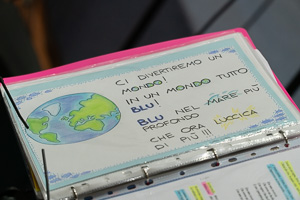 CI DIVERTIREMO UN
MONDO!
IN UN MONDO TUTTO
BLU!
BLU NEL MARE PIÙ
PROFONDO LUCCICA
CHE ORA
DI PIÙ!!!